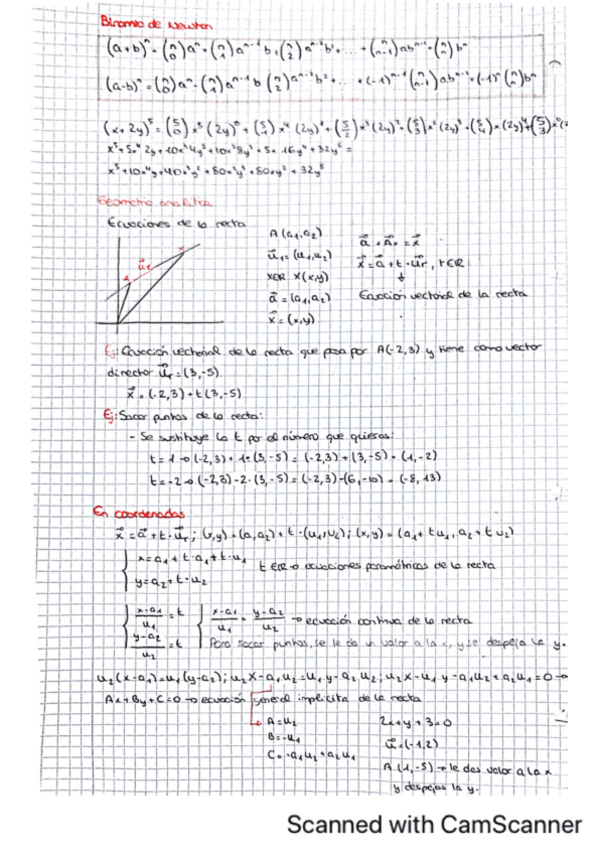 Binomio de Newton
(a+b)ⁿ = (n 0)aⁿ + (n 1)aⁿ⁻¹b + (n 2)aⁿ⁻²b² + ... + (n n-1)abⁿ⁻¹ + (n n)bⁿ
(a-b)ⁿ = (n 0)aⁿ - (n 1)aⁿ⁻¹b (n 2)aⁿ⁻²b² + ... + (-1)ⁿ⁻¹(n n-1)abⁿ⁻¹ + (-1)ⁿ(n n)bⁿ
(x+2y)⁵ = (5 0)x⁵(2y)⁰ + (5 1)x⁴(2y)¹ + (5 2)x³(2y)² + (5 3)x²(2y)³ + (5 4)x(2y)⁴ +
x⁵ + 5x⁴2y + 10x³4y² + 10x²8y³ + 5x 16y⁴ + 32y⁵ =
x⁵ + 10x⁴y + 40x³y² + 80x²y³ + 80xy⁴ + 32y⁵
Geometría analítica
Ecuaciones de la recta
A(a₁,a₂)
u⃗₁=(u₁,u₂)
x∈R X(x,y)
a⃗=(a₁,a₂)
x⃗=(x,y)
a⃗ + A⃗x = x⃗
x⃗ = a⃗ + t·u⃗r, t∈R
↓
Ecuación vectorial de la recta
u⃗r
Ej: Ecuación vectorial de la recta que pasa por A(-2,3) y tiene como vector
director u⃗r=(3,-5)
x⃗=(-2,3)+t(3,-5)
Ej: Sacar puntos de la recta:
- Se sustituye la t por el número que quieras:
t=1→(-2,3)+1·(3,-5)=(-2,3)+(3,-5)=(1,-2)
t=-2→(-2,3)-2·(3,-5)=(-2,3)-(6,-10)=(-8,13)
En coordenadas
x⃗=a⃗+t·u⃗r; (x,y)=(a,a₂)+t·(u₁,u₂); (x,y)=(a₁+tu₁,a₂+tu₂)
x=a₁+t·a₁+t·u₁
y=a₂+t·u₂
t∈R→ecuaciones paramétricas de la recta
(x-a₁)/u₁=t
(y-a₂)/u₂=t
(x-a₁)/u₁=(y-a₂)/u₂→ecuación continua de la recta
Para sacar puntos, se le da un valor a la x, y se despeja la y.
u₂(x-a₁)=u₁(y-a₂); u₂x-a₁u₂=u₁y-a₂u₂; u₂x-u₁y-a₁u₂+a₂u₁=0→
Ax+By+C=0→ecuación general implícita de la recta
A=u₂
B=-u₁
C=-a₁u₂+a₂u₁
2x+y+3=0
u⃗=(-1,2)
A(1,-5)→le das valor a la x
y despejas la y.
Scanned with CamScanner